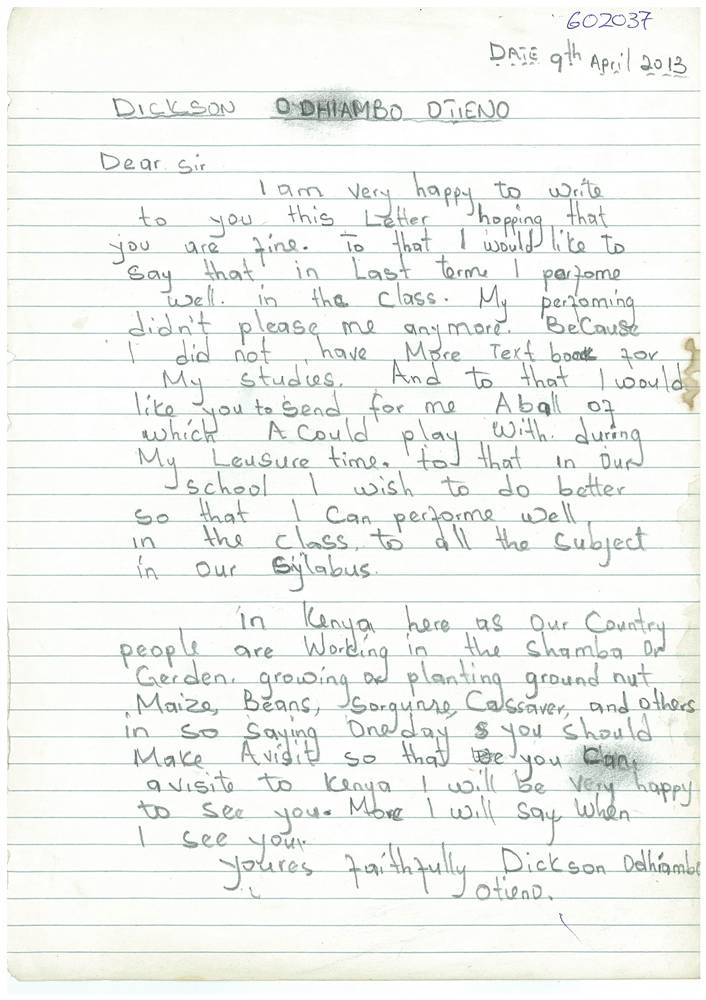 602037
DATE 9th April 2013
DICKSON ODHIAMBO OTIENO
Dear sir
I am very happy to write
to you this Letter hopping that
you are fine. To that I would like to
say that in Last terme I perfome
well. in the class. My perfoming
didn't please me anymore. BeCause
I did not have More Text book for
My studies. And to that I would
like you to send for me A ball of
which A Could play With during
My Leusure time. to that in our
school I wish to do better
so that I Can performe well
in the class, to all the subject
in our Sylabus.
in Kenya here as our Country
people are Working in the Shamba Or
Gerden. growing or planting ground nut
Maize, Beans, Sorgunse, Cassaver, and others
in so saying One day you should
Make A visit so that you Can
a visite to Kenya I will be very happy
to see you. More I will say When
I see you.
youres faithfully Dickson Odhiambo
Otieno.